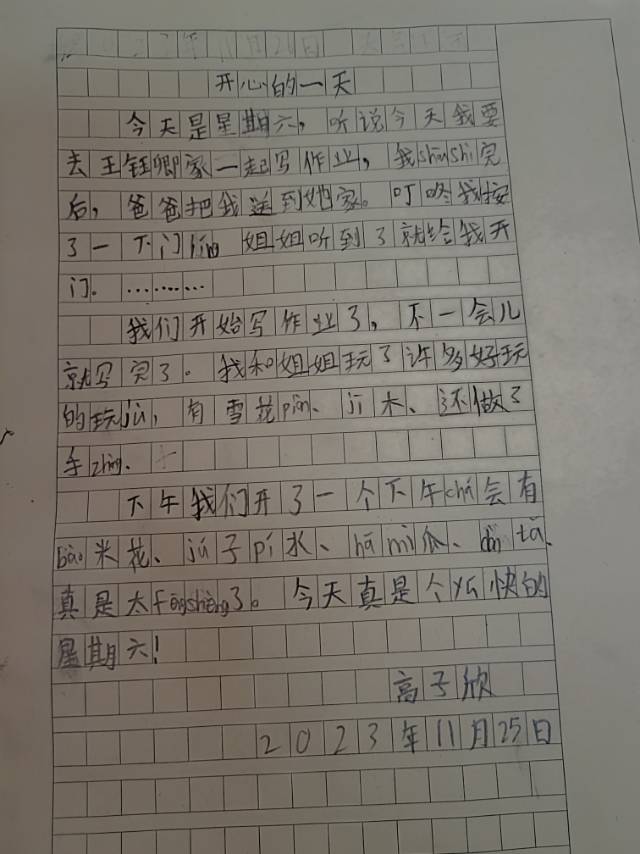 开心的一天
今天是星期六，听说今天我要
去王钰卿家一起写作业，我shōushi完
后，爸爸把我送到她家。叮咚我按
了一下门líng 姐姐听到了就给我开
门。………
我们开始写作业了，不一会儿
就写完了。我和姐姐玩了许多好玩
的玩jù，有雪花piàn、jī木、还做了
手zhàng.
下午我们开了一个下午chá会有
bào米花、jú子pí水、hā mì瓜、dàn tà、
真是太fēngshèng了。今天真是个yú快的
星期六！
高子欣
2023年11月25日